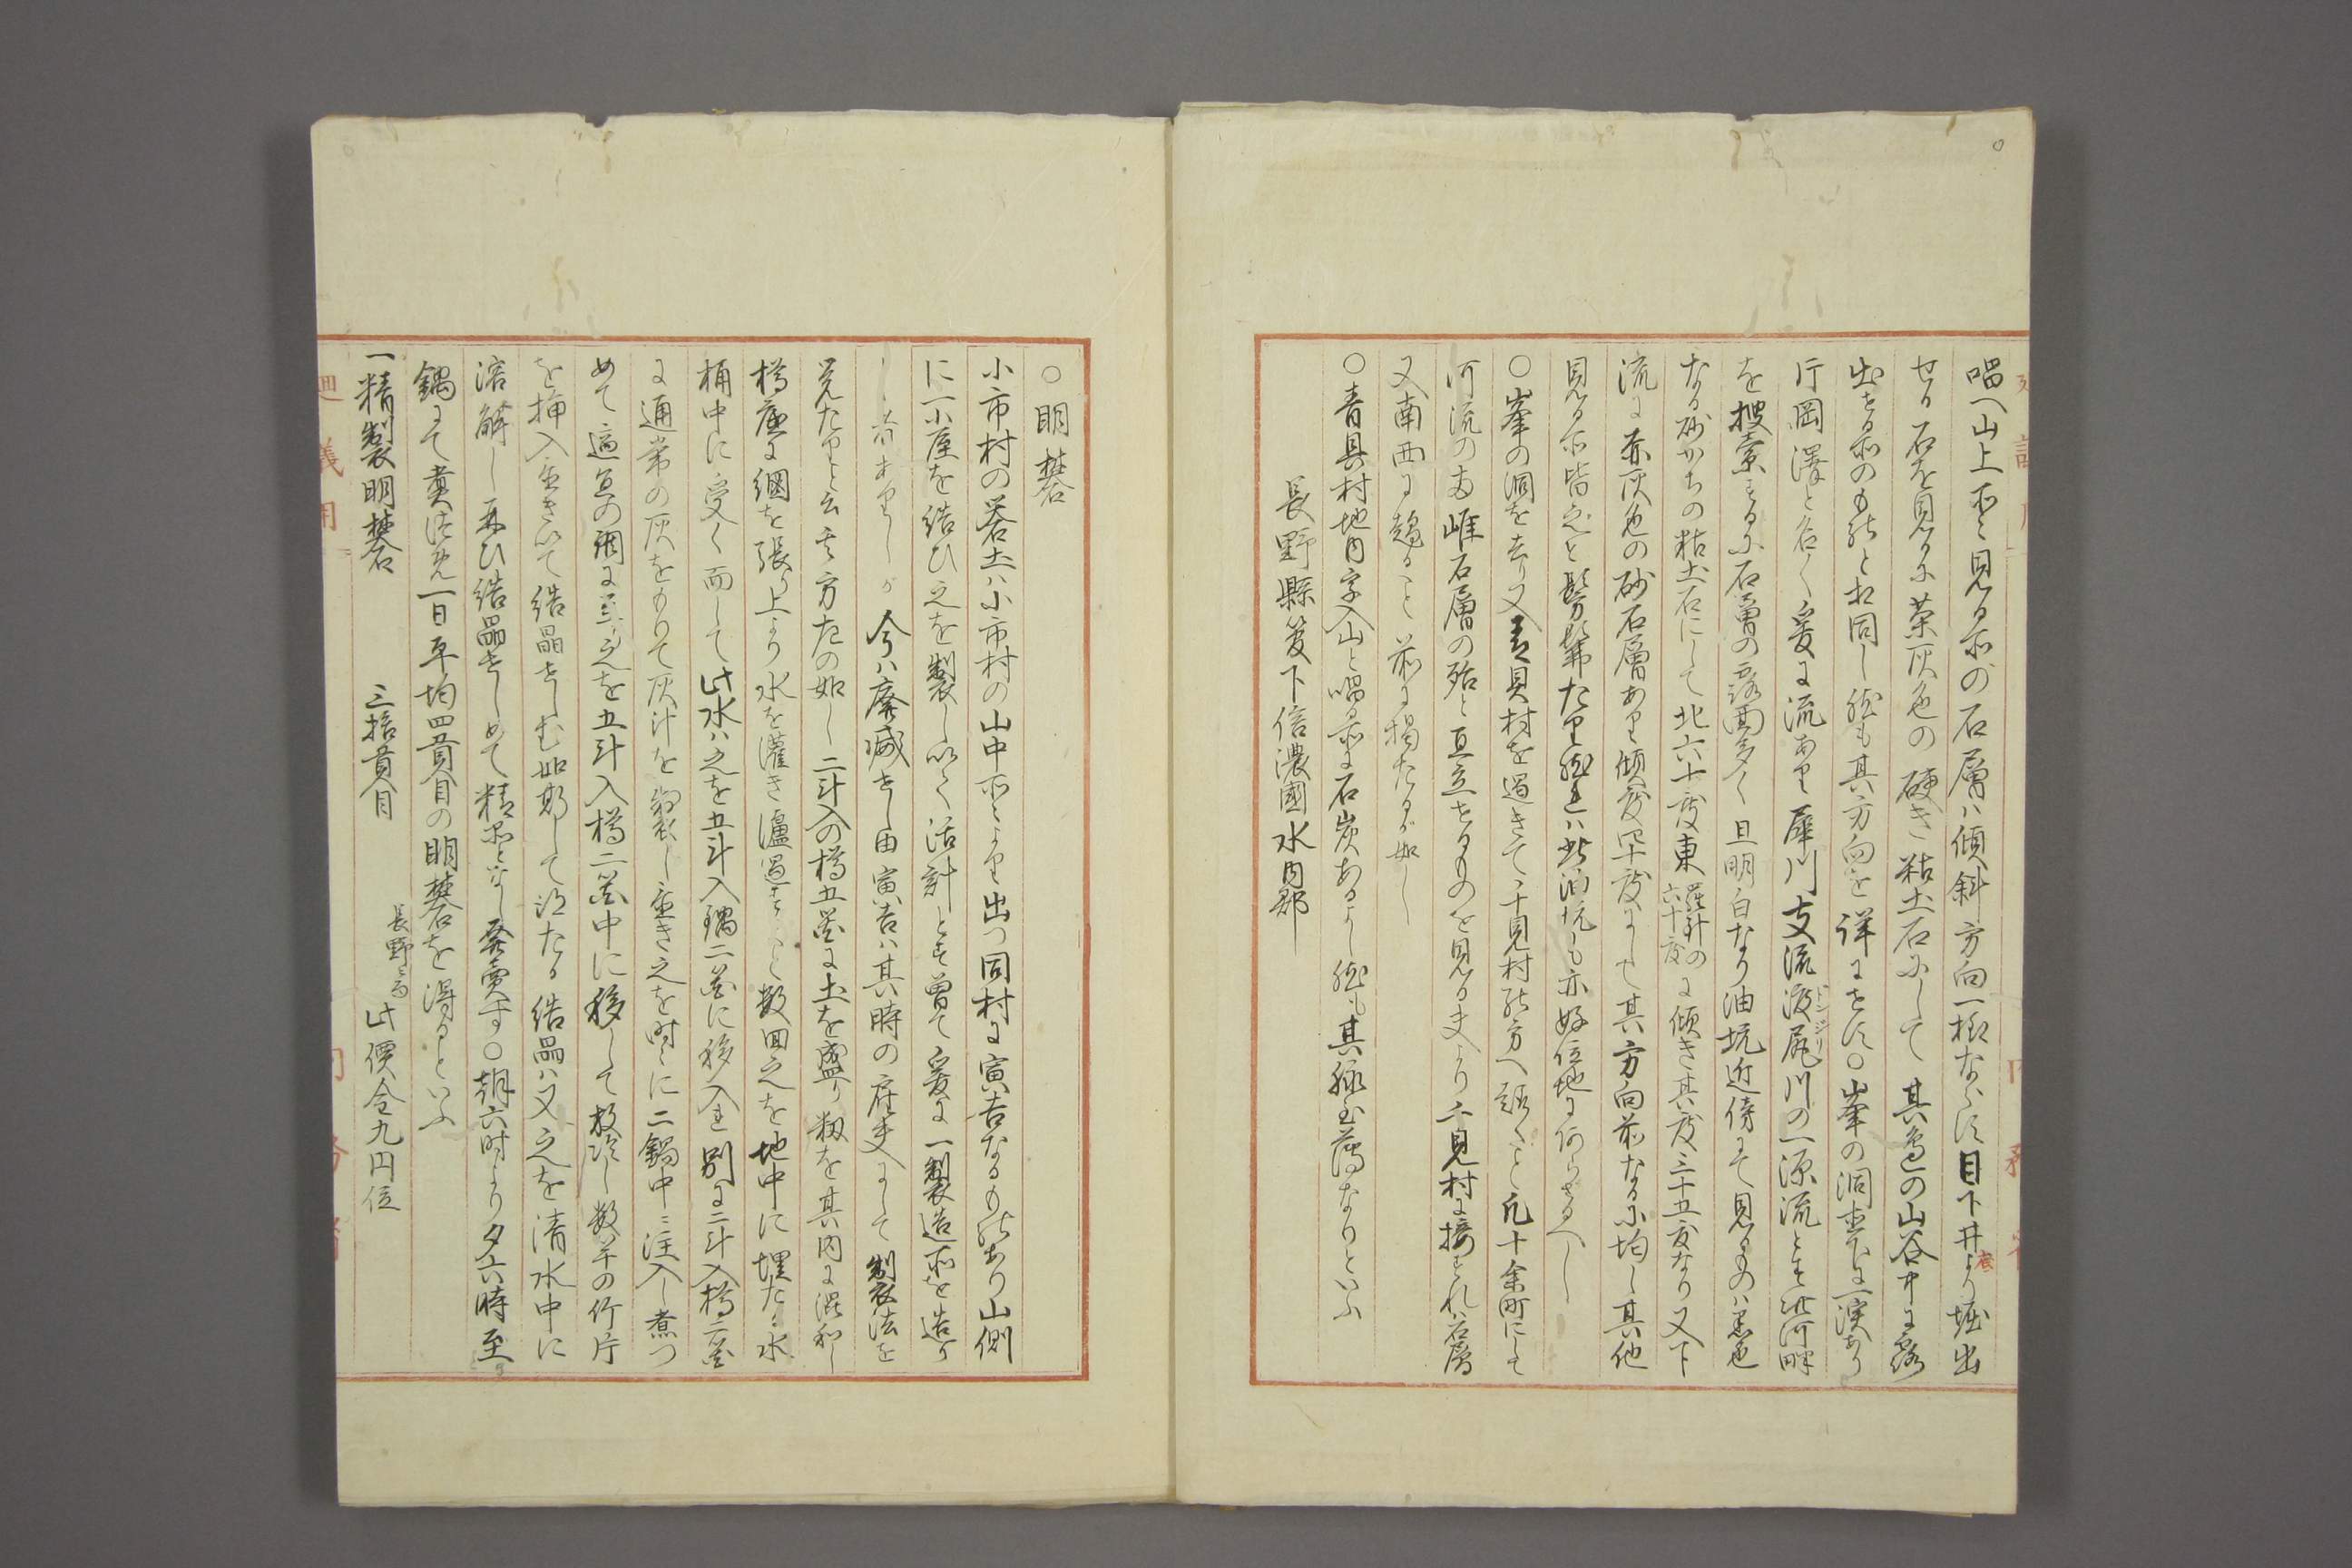 唱へ山上所々見る所の石層ハ傾斜方向一様ならす目下井底より堀出
せる石を見るに茶灰色の硬き粘土石にして其色の山谷中に露
出せる所のものと相同し然も其方向を詳にせす〇峯の洞
片岡澤と名く爰に流あり犀川支流濁尻川の一源流とす此河畔
を捜索するに石層の露面多く且明白なり油坑近傍にて見るものハ黒色
なる砂かちの粘土石にして北六十度東羅針の六十度に傾き其度三十五度なり又下
流に赤灰色の砂石層あり傾度四十度にして其方向前なるに均し其他
見る所皆之と髣髴たり然れハ此油坑も亦好位地に
〇峯の洞を去り又青具村を過きて千見村の方へ凡十余町にして
河流の両崖石層の殆と直立せるものを見る夫より千見村に接すれハ石層
又南西に趨ること前に掲たるか如し
〇青具村地内字入山と唱る所に石炭あるよし然も其脉至薄なりといふ
長野縣管下信濃國水内郡
〇明礬
小市村の礬土ハ小市村の山中所々より出つ同村に寅吉なるものあり山側
に一小屋を結ひ之を製し以て活計とす曽て爰に一製造所を造り
し者ありしか今ハ廃滅せし由寅吉ハ其時の雇夫にして製法を
覚たりと云其方左の如し二斗入の樽五箇に土を盛り籾を其内に混和し
樽底に網を張り上より水を灌き濾過すること数回之を地中に埋たる水
桶中に受く而して此水ハ之を五斗入鍋二箇に移入れ別に二斗入樽二箇
に通常の灰をもりて灰汁を製し置き之を時々に二鍋中に注入し煮つ
めて適宜の稠に至り之を五斗入樽二箇中に移して放冷し数本の竹片
を挿入置きいて結晶せしむ如斯して得たる結晶ハ又之を清水中に
溶解し再ひ結晶せしめて精品となし発賣す〇朝六時より夕六時至
鍋にて煮詰め一日平均四貫目の明礬を得るといふ
一精製明礬　三拾貫目　長野にて　此價金九円位